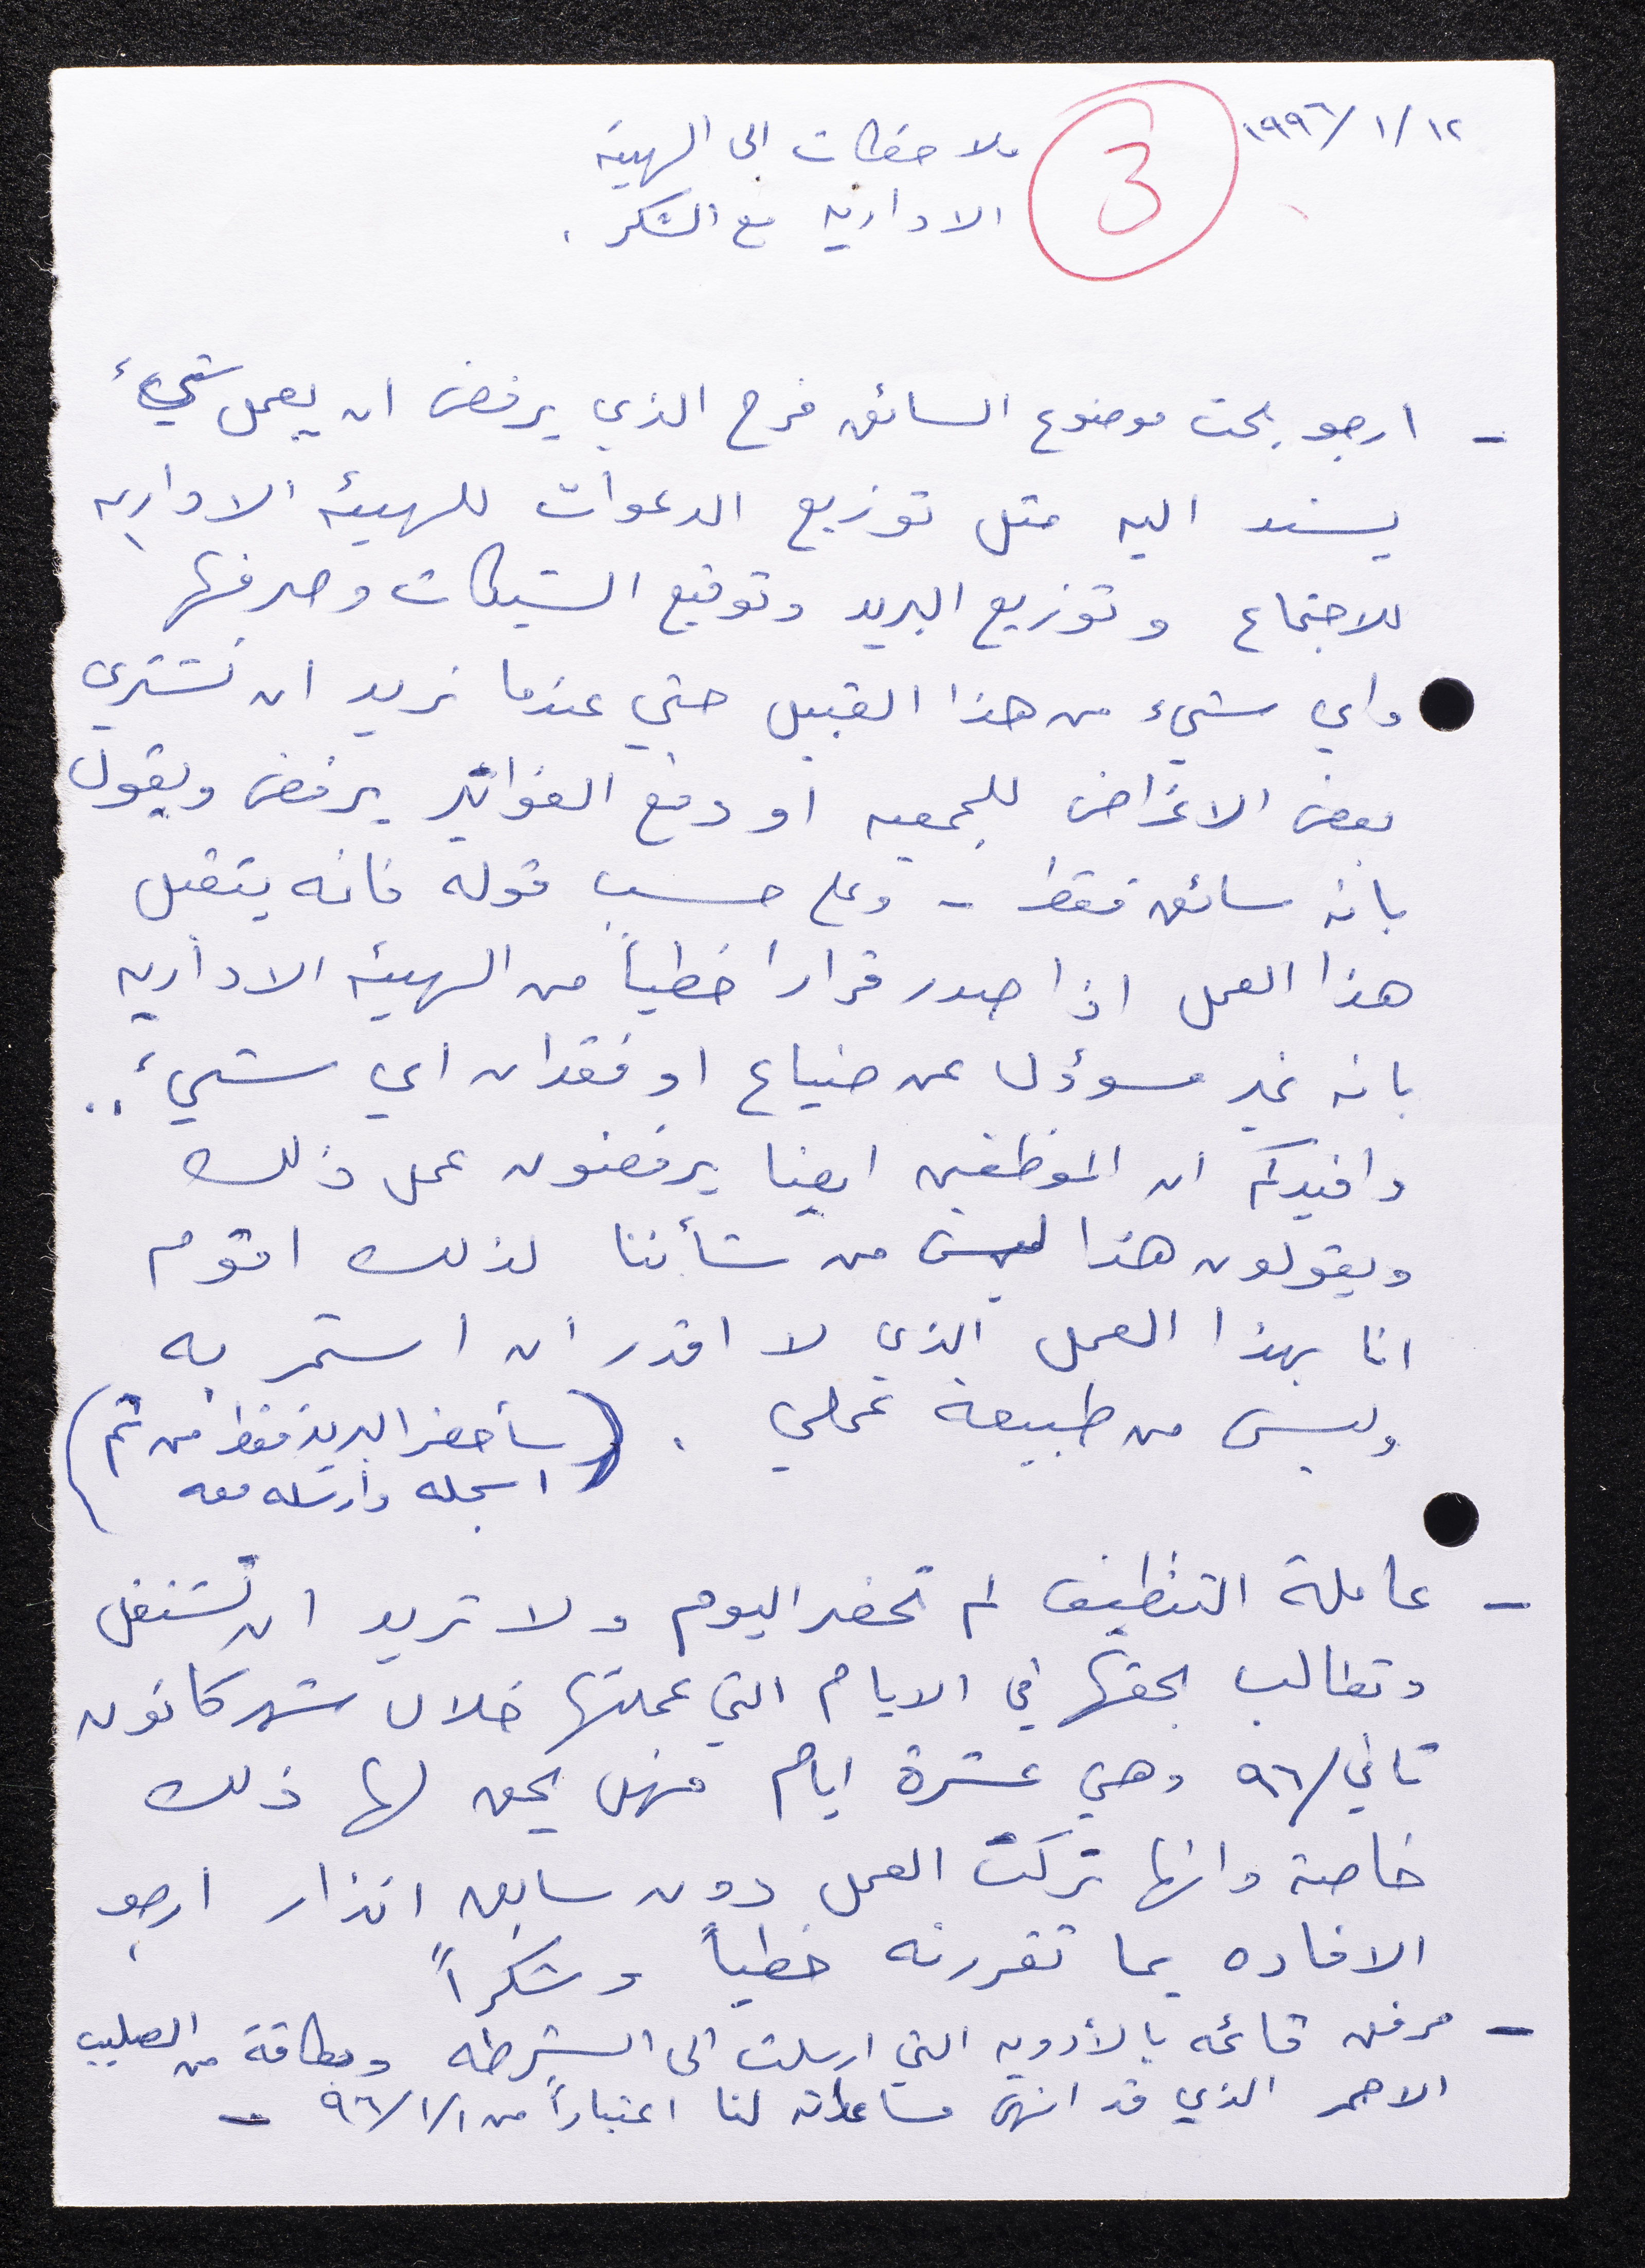 ١٩٩٦/١/١٢
3
ملاحظات الى الهيئة
الادارية مع الشكر .
- ارجو بحث موضوع السائق فرح الذي يرفض ان يعمل شيء
يسند اليه مثل توزيع الدعوات للهيئه الاداريه
للاجتماع وتوزيع البريد وتوقيع الشيكات وصرفها
واي شيء من هذا القبيل حتي عندما نريد ان نشتري
بعض الاغراض للجمعيه او دفع الفواتير يرفض ويقول
بانه سائق فقط - وعلى حسب قوله فانه يتقبل
هذا العمل اذا صدر قرارا خطياً من الهيئه الاداريه
بانه غير مسؤول عن ضياع او فقدان اي شيء ..
وافيدكم ان الموظفين ايضا يرفضون عمل ذلك
ويقولون هذا ليس من شأننا لذلك اقوم
انا بهذا العمل الذي لا اقدر ان استمر به
وليس من طبيعة عملي .
(سأحضر البريد فقط من ثم
اسجله وارسله معه)
- عاملة التنظيف لم تحضر اليوم ولا تريد ان تشتغل
وتطالب بحقها في الايام التي عملتها خلال شهر كانون
ثاني/٩٦ وهي عشرة ايام فهل يحق لها ذلك
خاصة وانها تركت العمل دون سابق انذار ارجو
الافاده بما تقررنه خطياً وشكراً
- مرفق قائمه بالأدويه التي ارسلت الى الشرطه وبطاقة من الصليب
الاحمر الذي قد انهى مساعداته لنا اعتباراً من ٩٦/١/١ -